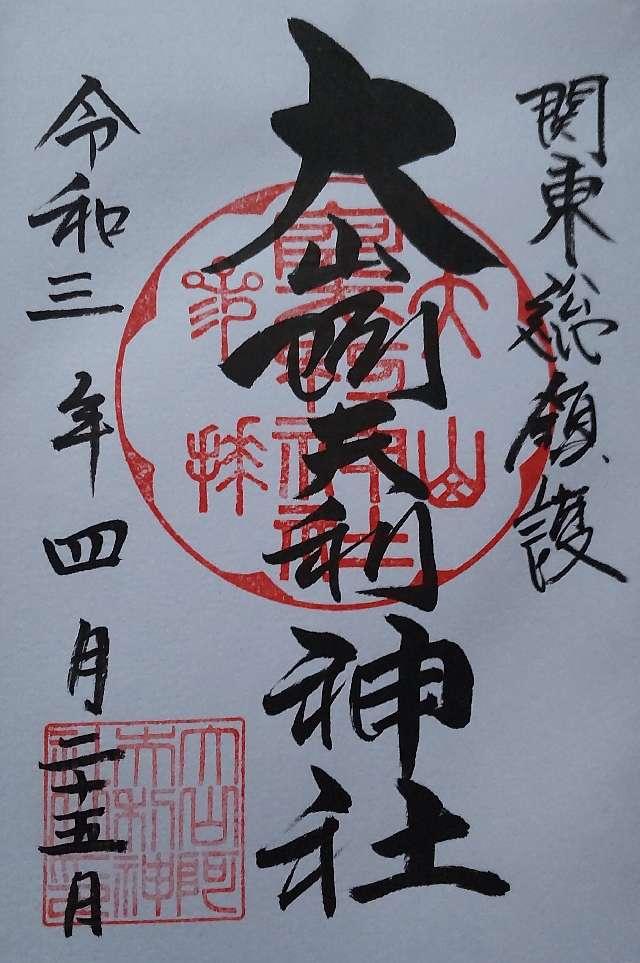 関東総鎮護
大山阿夫利神社
令和三年四月二十五日
大山
大山阿
夫利神